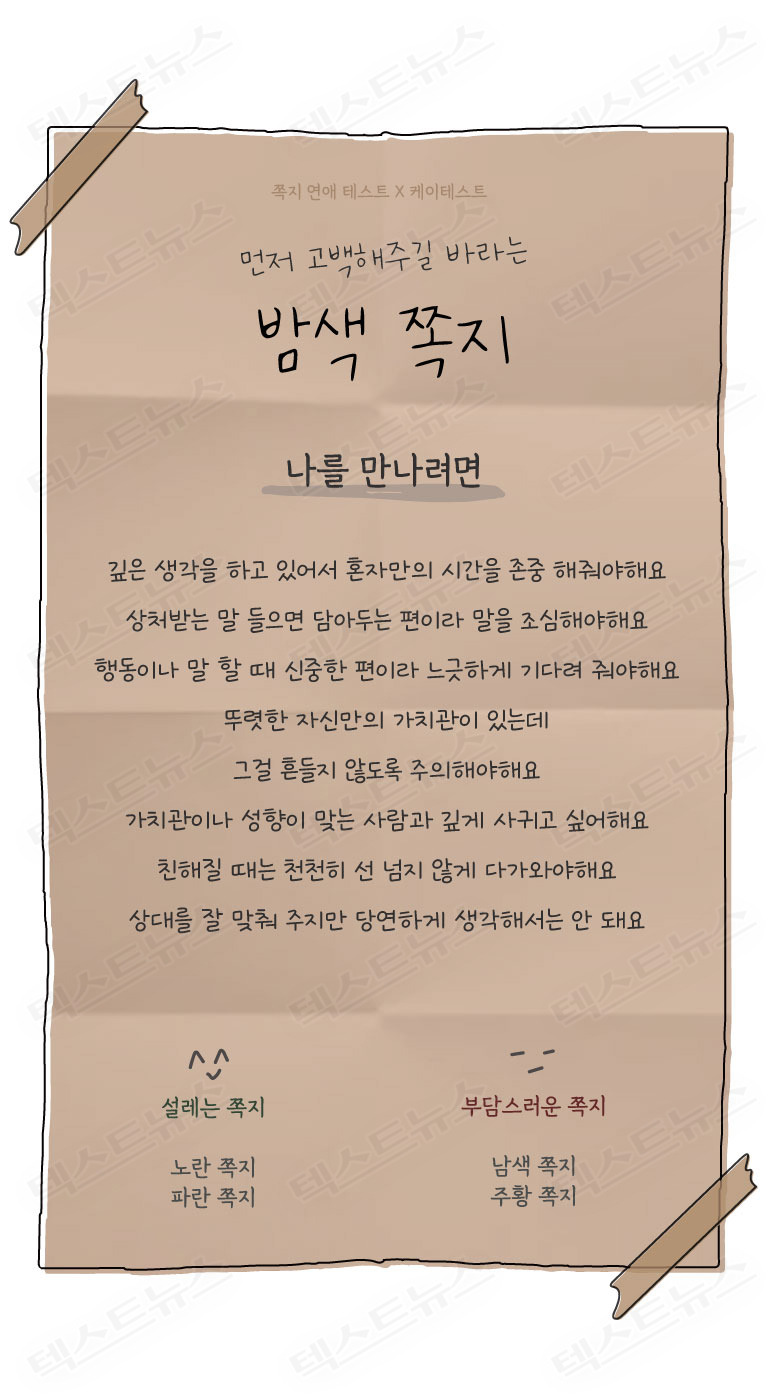 쪽지 연애 테스트 X 케이테스트
먼저 고백해주길 바라는
밤색 쪽지
나를 만나려면
깊은 생각을 하고 있어서 혼자만의 시간을 존중 해줘야해요
상처받는 말 들으면 담아두는 편이라 말을 조심해야해요
행동이나 말 할 때 신중한 편이라 느긋하게 기다려 줘야해요
뚜렷한 자신만의 가치관이 있는데
그걸 흔들지 않도록 주의해야해요
가치관이나 성향이 맞는 사람과 깊게 사귀고 싶어해요
친해질 때는 천천히 선 넘지 않게 다가와야해요
상대를 잘 맞춰 주지만 당연하게 생각해서는 안 돼요
설레는 쪽지
노란 쪽지
파란 쪽지
부담스러운 쪽지
남색 쪽지
주황 쪽지
텍스트뉴스